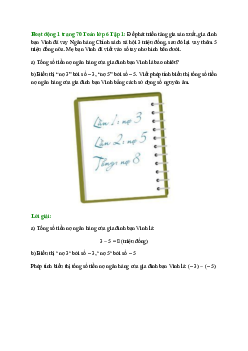 Hoạt động 1 trang 70 Toán lớp 6 Tập 1: Để phát triển tăng gia sản xuất, gia đình
bạn Vinh đã vay Ngân hàng Chính sách xã hội 3 triệu đồng, sau đó lại vay thêm 5
triệu đồng nữa. Mẹ bạn Vinh đã viết vào sổ tay như hình bên dưới.
a) Tổng số tiền nợ ngân hàng của gia đình bạn Vinh là bao nhiêu?
b) Biểu thị "nợ 3" bởi số – 3, "nợ 5" bởi số – 5. Viết phép tính biểu thị tổng số tiền
nợ ngân hàng của gia đình bạn Vinh và kết quả của phép tính đó.
Lần 1: nợ 3
Lần 2: nợ 5
Tổng: nợ 8
Lời giải:
a) Tổng số tiền nợ ngân hàng của gia đình bạn Vinh là:
3 – 5 = 8 (triệu đồng)
b) Biểu thị "nợ 3" bởi số – 3, "nợ 5" bởi số – 5
Phép tính biểu thị tổng số tiền nợ ngân hàng của gia đình bạn Vinh là: (–3) – (–5)